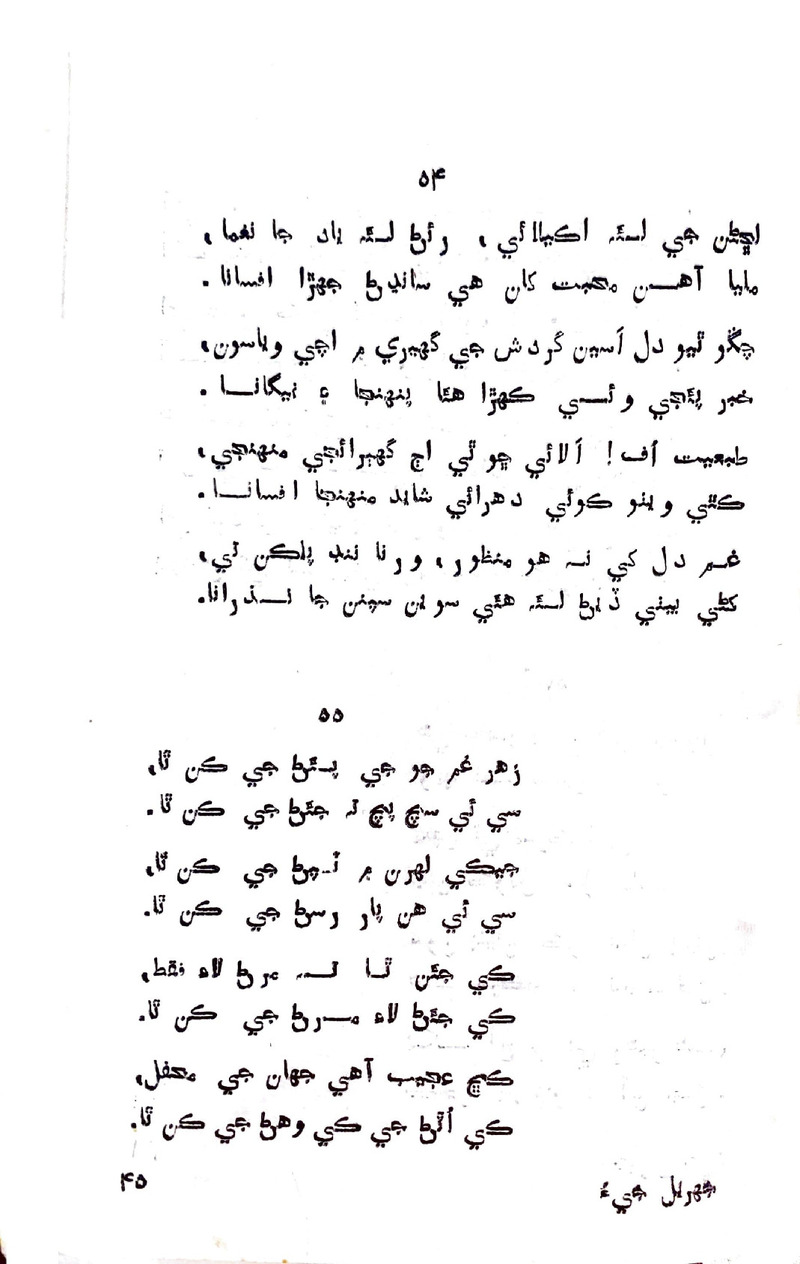 ۵۴
اچڻن جي لئہ اکيلائي، رئڻ لئہ ياد جا نغما،
مليا آهن محبت کان هي سانڍڻ جهڙا افسانا.
چڱو ٿيو دل اَسين گردش جي گهيري ۾ اچي وياسون،
خبر پئجي وئي ڪهڙا هئا پنهنجا ۽ بيگانا.
طبعيت اُف! اَلائي ڇو ٿي اڄ گهبرائجي منهنجي،
ڪٿي ويٺو ڪوئي دهرائي شايد منهنجا افسانا.
غم دل کي نہ هو منظور، ورنا ننڊ پلڪن تي،
کڻي بيٺي ڏيڻ لئہ هئي سوين سپنن جا نذرانا.
۵۵
زهر غم جو جي پيئڻ جي ڪن ٿا،
سي ئي سچ پچ تہ جيئڻ جي ڪن ٿا.
جيڪي لهرن ۾ ٻڏڻ جي ڪن ٿا،
سي ئي هن پار رسڻ جي ڪن ٿا.
ڪي جيئن ٿا تہ مرڻ لاءِ فقط،
ڪي جيئڻ لاءِ مرڻ جي ڪن ٿا.
ڪجهہ عجيب آهي جهان جي محفل،
ڪي اُٿڻ جي ڪي وهڻ جي ڪن ٿا.
جهريل جيءُ
۴۵